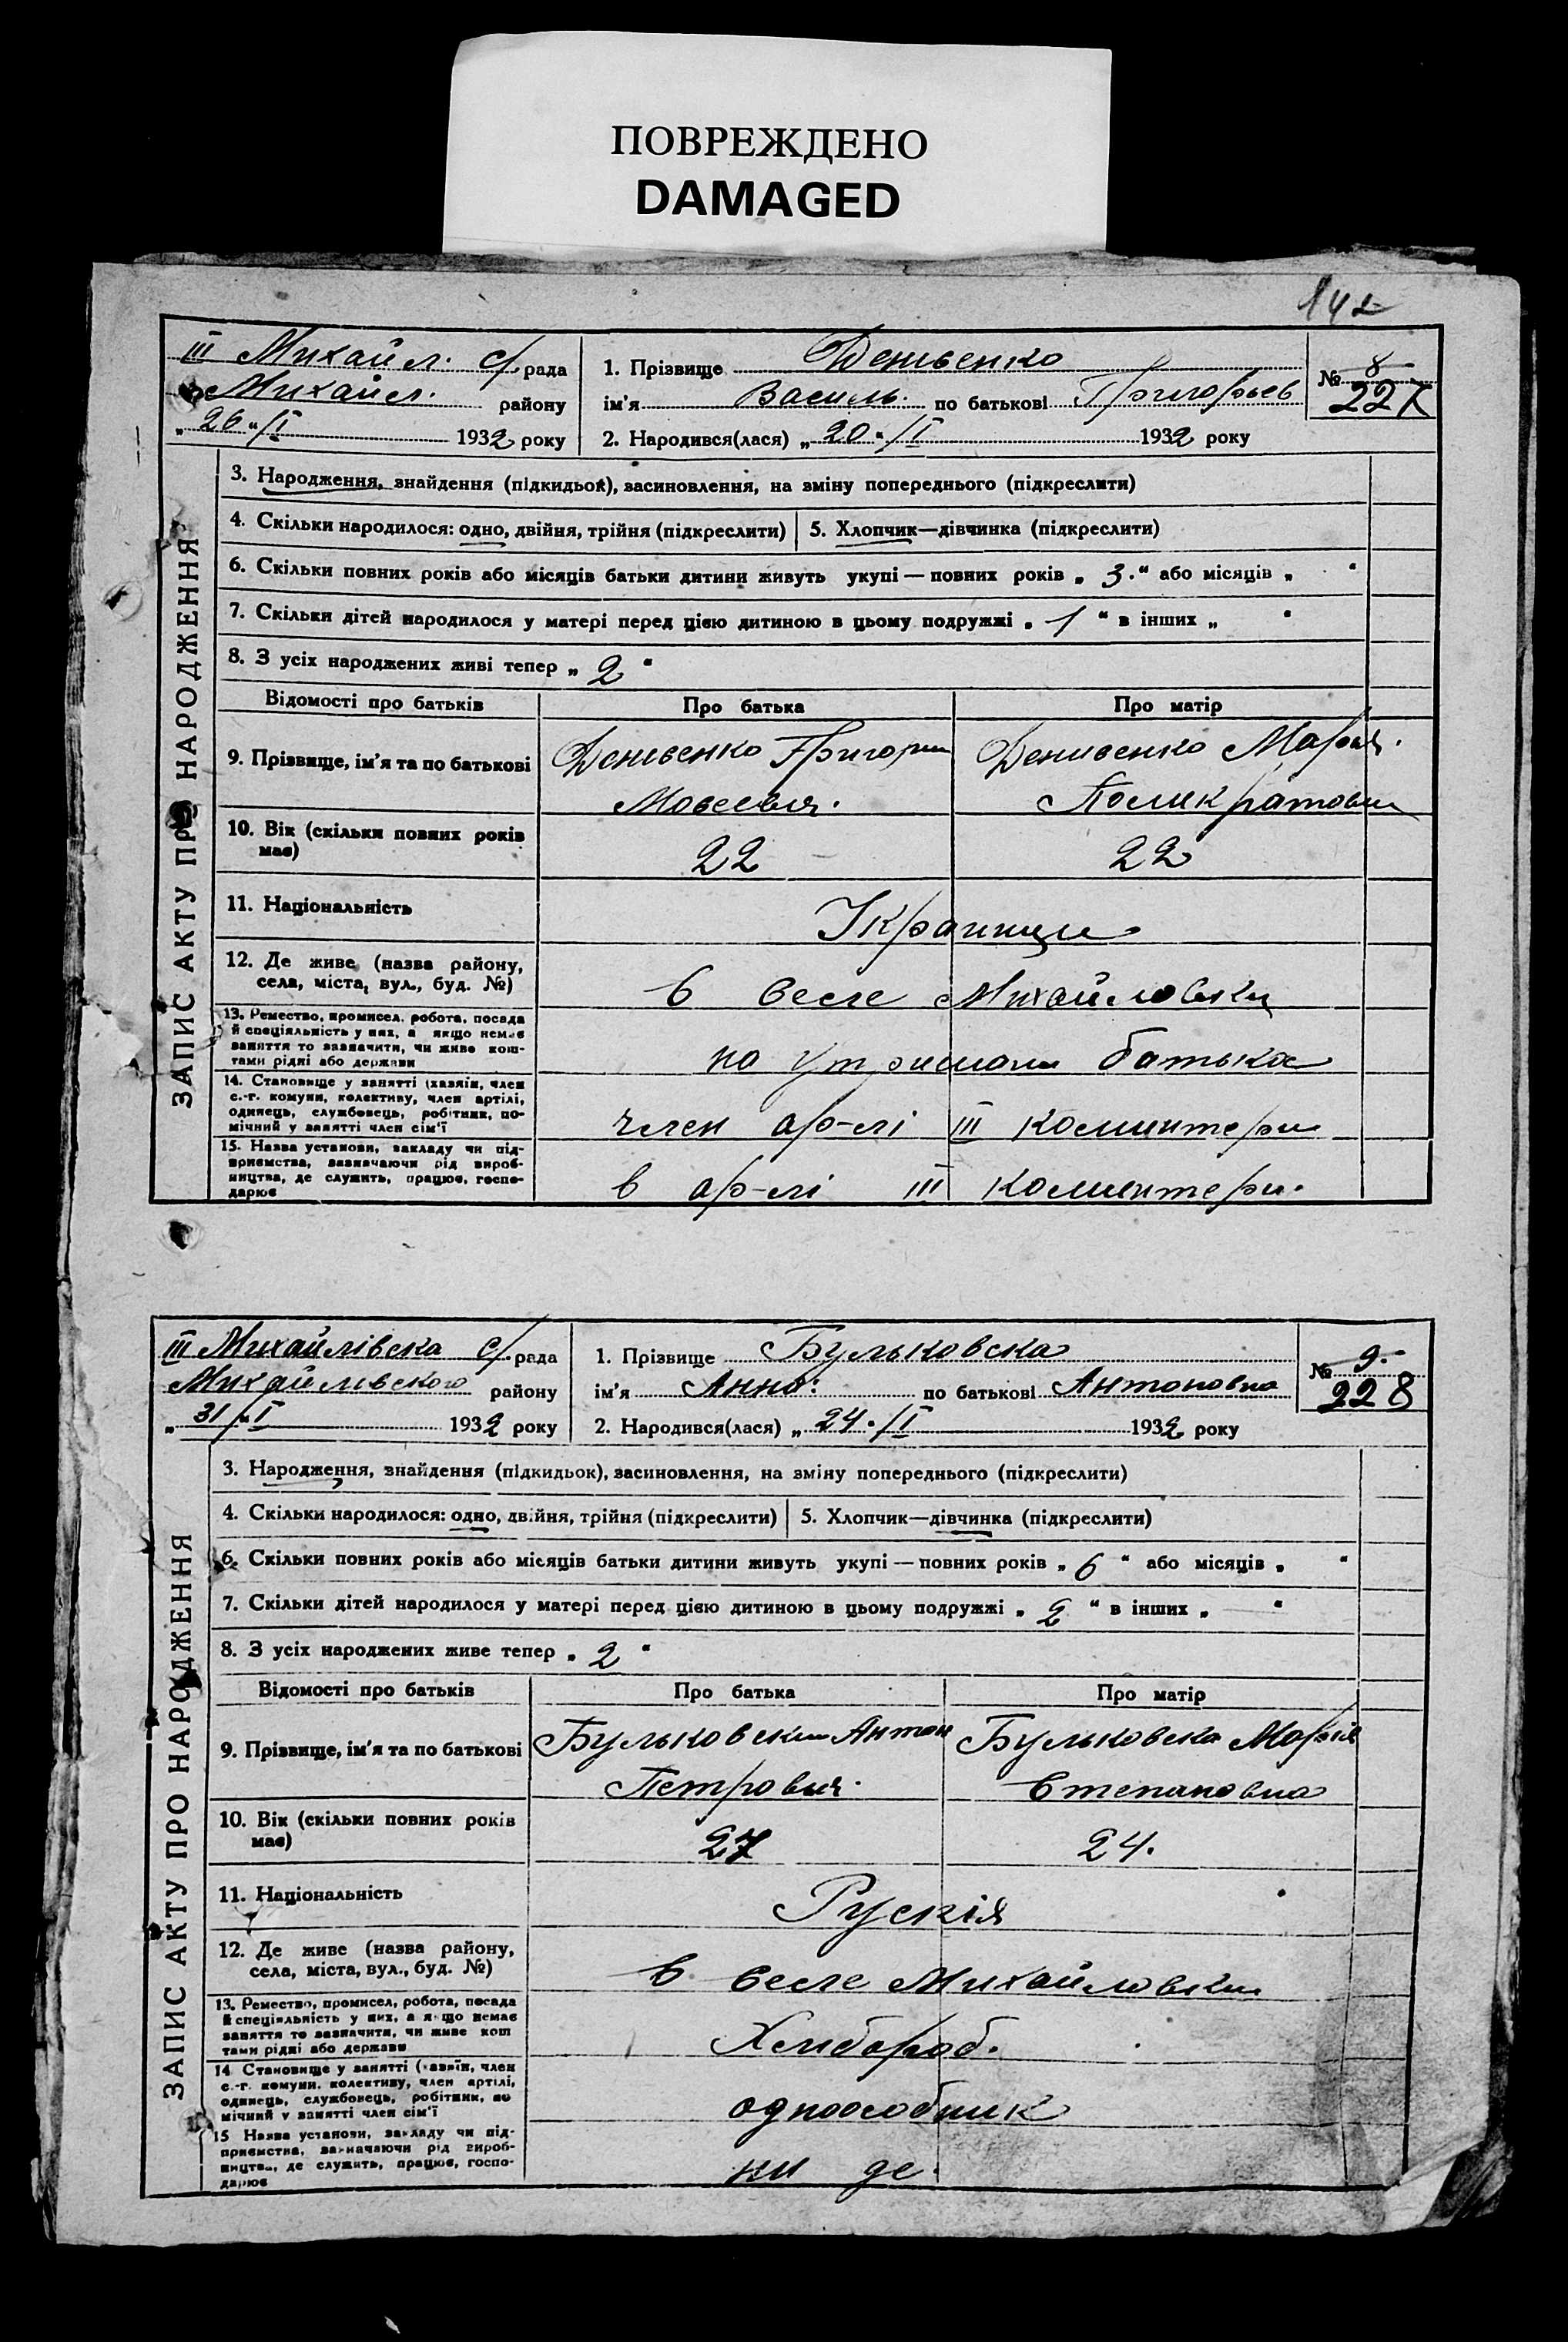 ПОВРЕЖДЕНО
DAMAGED
142
III Михайл. с/рада
Михайл. району
„26“/I 1932 року
1. Прізвище Денвенко
ім'я Василь. по батькові Григорьев
2. Народився(лася) „20“/I 1932 року
№ 8
227
ЗАПИС АКТУ ПРО НАРОДЖЕННЯ
3. Народження, знайдення (підкидьок), засиновлення, на зміну попереднього (підкреслити)
4. Скільки народилося: одно, двійня, трійня (підкреслити) 5. Хлопчик—дівчинка (підкреслити)
6. Скільки повних років або місяців батьки дитини живуть укупі — повних років „ 3. “ або місяців „ “
7. Скільки дітей народилося у матері перед цією дитиною в цьому подружжі „ 1 “ в інших „ “
8. З усіх народжених живі тепер „ 2 “
Відомості про батьків Про батька Про матір
9. Прізвище, ім'я та по батькові
Денвенко Григорий Денвенко Мария.
Мовсевич.
10. Вік (скільки повних років має) 22 22
11. Національність Украинци
12. Де живе (назва району, села, міста, вул., буд. №)
в весле Михайловки
13. Ремество, промисел, робота, посада й спеціяльність у них, а якщо немає заняття то зазначити, чи живе коштами рідні або держави
на утримани батька
14. Становище у занятті (хазяїн, член с.-г. комуни, колективу, член артілі, одинець, службовець, робітник, помічний у занятті член сім'ї
член ар-лі III коминтерн
15. Назва установи, закладу чи підприємства, зазначаючи рід виробництва, де служить, працює, господарює
в ар-лі III коминтерн.
III Михайлівска с/рада
Михайлівского району
„31“/I 1932 року
1. Прізвище Бульковска
ім'я Анна: по батькові Антоновна
2. Народився(лася) „24“/I 1932 року
№ 9.
228
ЗАПИС АКТУ ПРО НАРОДЖЕННЯ
3. Народження, знайдення (підкидьок), засиновлення, на зміну попереднього (підкреслити)
4. Скільки народилося: одно, двійня, трійня (підкреслити) 5. Хлопчик—дівчинка (підкреслити)
6. Скільки повних років або місяців батьки дитини живуть укупі — повних років „ 6 “ або місяців „ “
7. Скільки дітей народилося у матері перед цією дитиною в цьому подружжі „ 2 “ в інших „ — “
8. З усіх народжених живе тепер „ 2 “
Відомості про батьків Про батька Про матір
9. Прізвище, ім'я та по батькові
Бульковский Антон Бульковска Марія
Петрович. Степановна
10. Вік (скільки повних років має) 27 24.
11. Національність Рускія
12. Де живе (назва району, села, міста, вул., буд. №)
в весле Михайловки
13. Ремество, промисел, робота, посада й спеціяльність у них, а якщо немає заняття то зазначити, чи живе коштами рідні або держави
Хлибороб.
14 Становище у занятті (хазяїн, член с.-г. комуни, колективу, член артілі, одинець, службовець, робітник, помічний у занятті член сім'ї
одноособник
15 Назва установи, закладу чи підприємства, зазначаючи рід виробництва, де служить, працює, господарює
ни де.